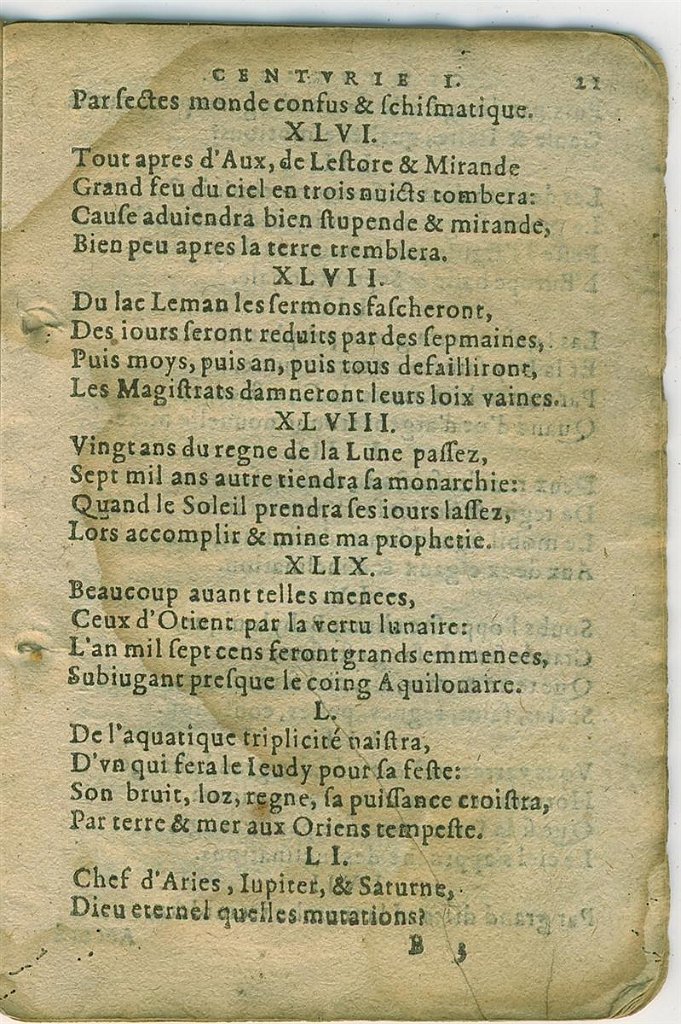 CENTVRIE I. 21
Par ſectes monde confus & ſchiſmatique.
XLVI.
Tout apres d'Aux, de Leſtore & Mirande
Grand feu du ciel en trois nuicts tombera:
Cauſe aduiendra bien ſtupende & mirande,
Bien peu apres la terre tremblera.
XLVII.
Du lac Leman les ſermons faſcheront,
Des iours ſeront reduits par des ſepmaines,
Puis moys, puis an, puis tous defailliront,
Les Magiſtrats damneront leurs loix vaines.
XLVIII.
Vingt ans du regne de la Lune paſſez,
Sept mil ans autre tiendra ſa monarchie:
Quand le Soleil prendra ſes iours laſſez,
Lors accomplir & mine ma prophetie.
XLIX.
Beaucoup auant telles menees,
Ceux d'Orient par la vertu lunaire:
L'an mil ſept cens feront grands emmenees,
Subiugant preſque le coing Aquilonaire.
L.
De l'aquatique triplicité naiſtra,
D'vn qui fera le Ieudy pour ſa feſte:
Son bruit, loz, regne, ſa puiſſance croiſtra,
Par terre & mer aux Oriens tempeſte.
LI.
Chef d'Aries, Iupiter, & Saturne,
Dieu eternel quelles mutations?
B 3